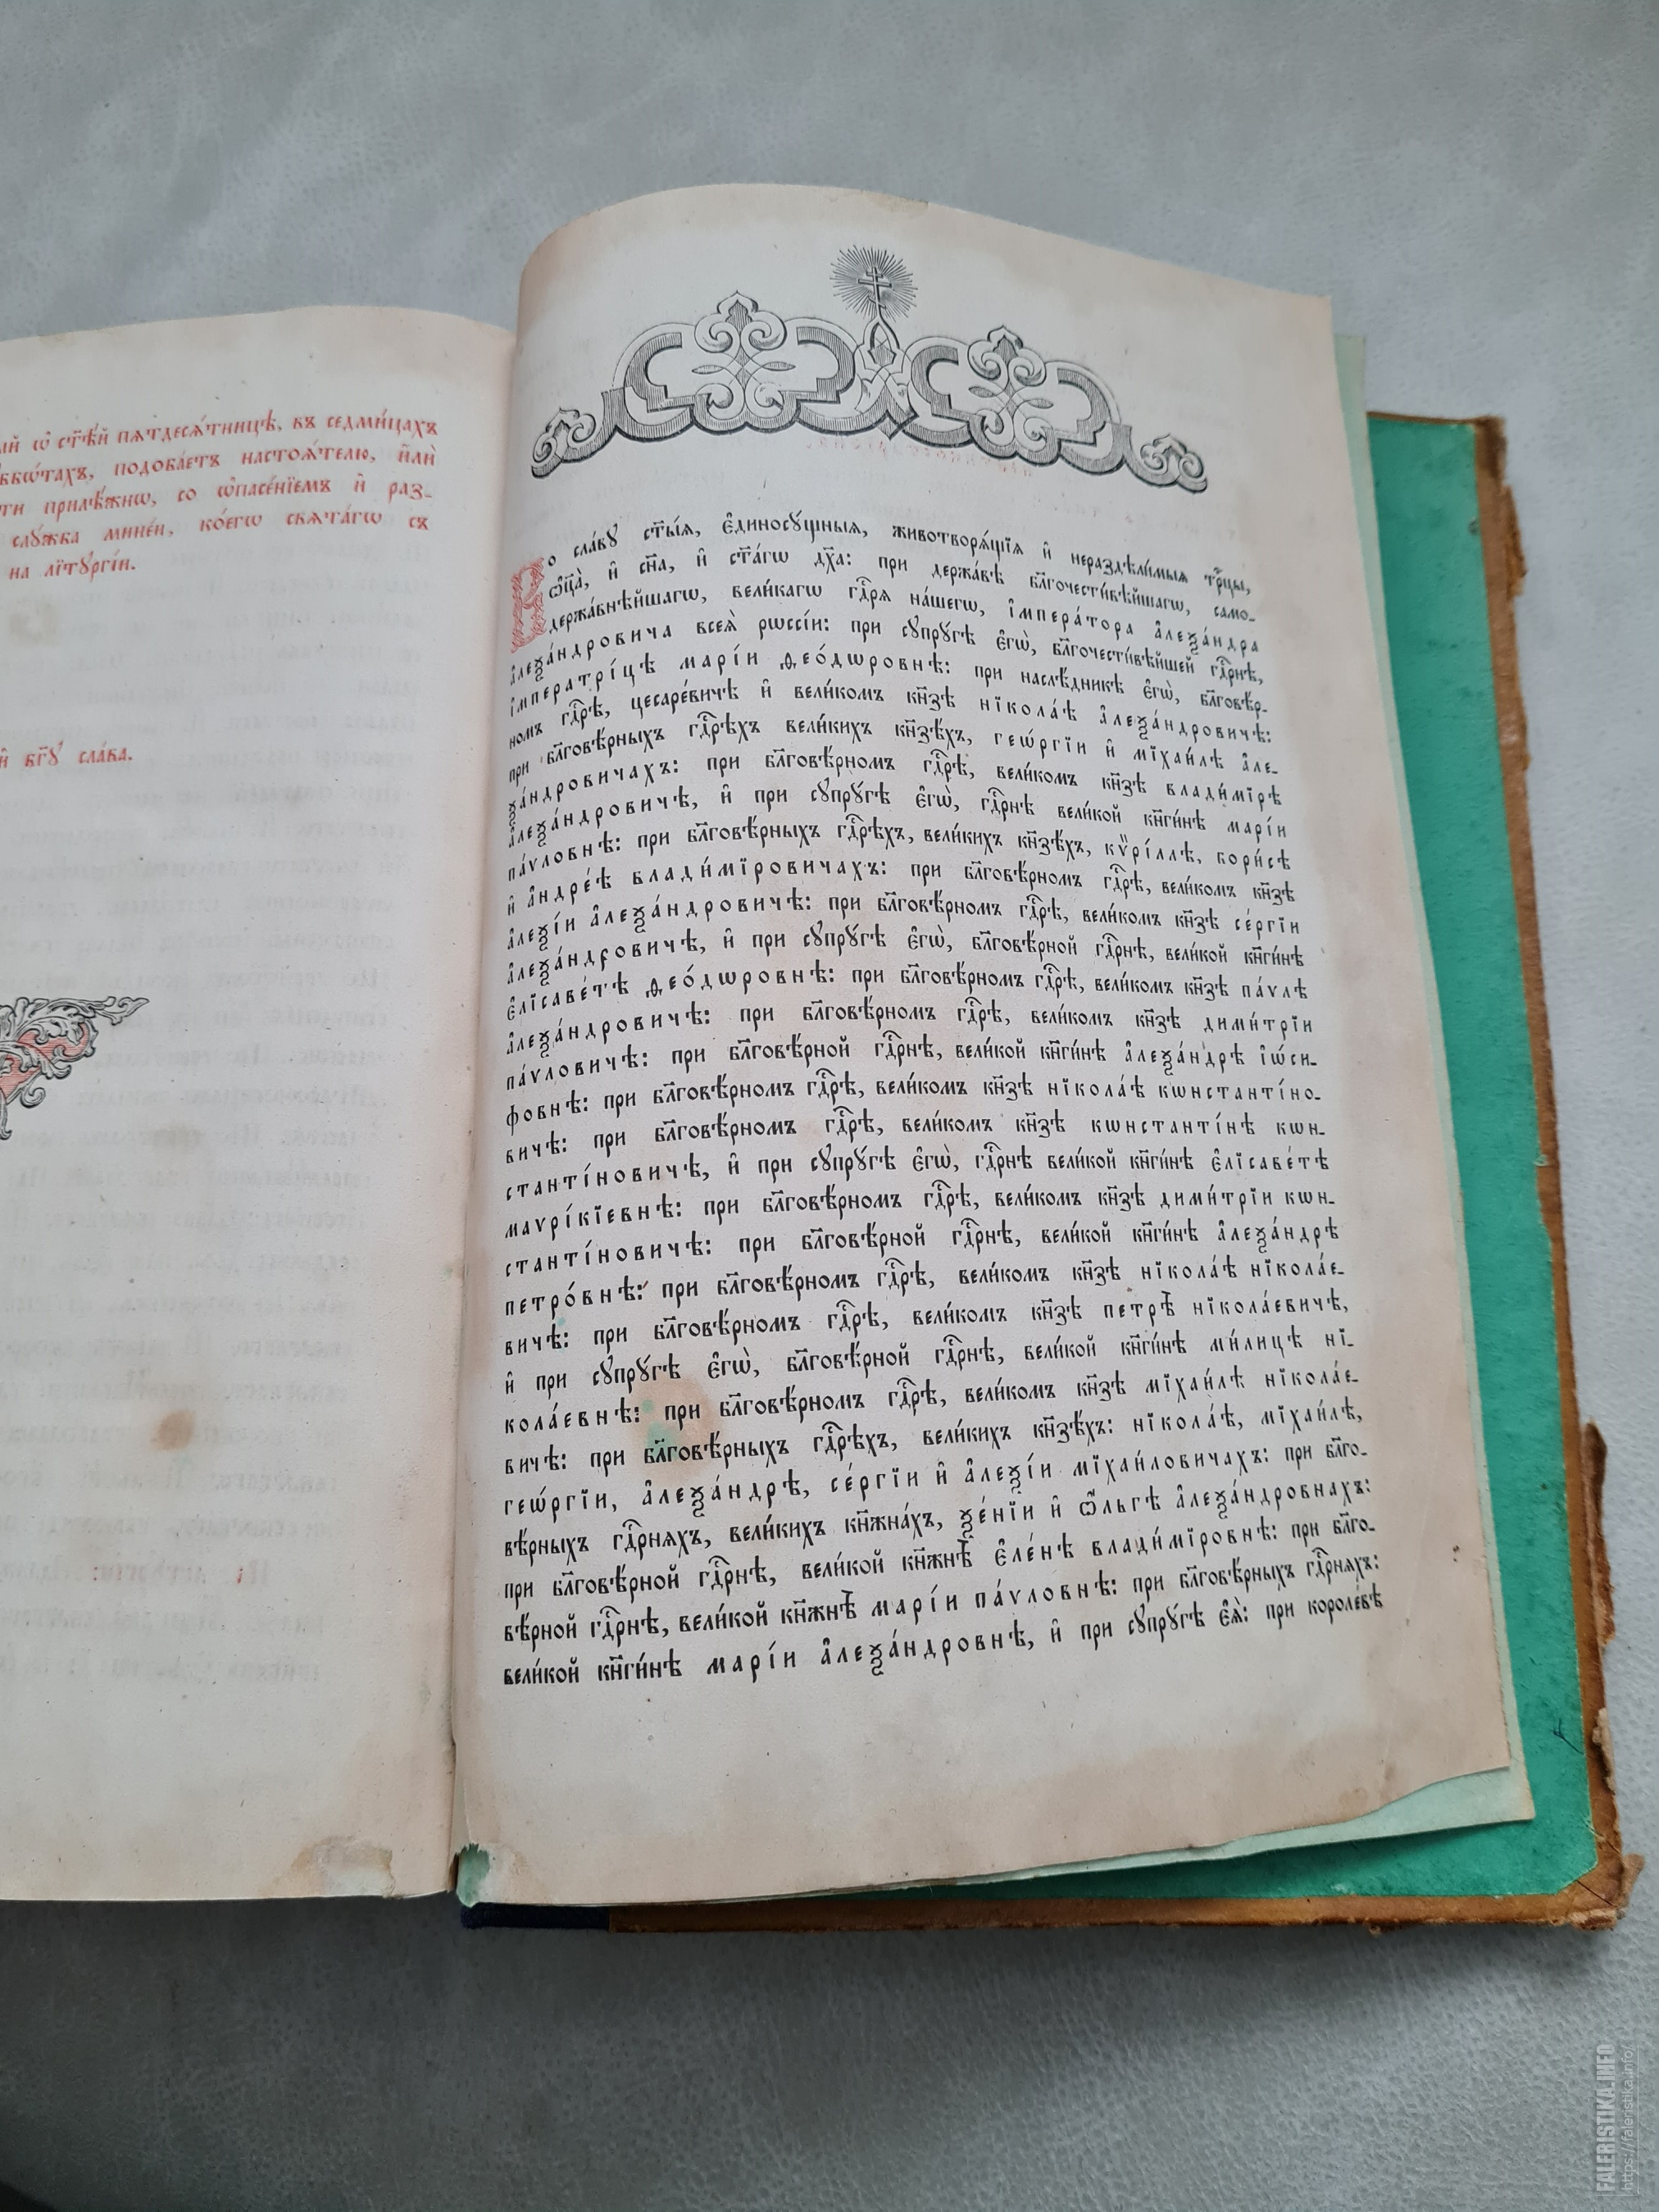 ѿ ст҃ѣ́й пѧтдесѧ́тницѣ, въ седми́цахъ
подоба́етъ настоѧ́телю, и҆лѝ
прилѣ́жнѡ, со ѡ҆пасе́нїемъ и҆ раз-
слꙋ́жба мине́и, ко́егѡ свѧта́гѡ съ
на лїтꙋргі́и.
и҆ бг҃ꙋ сла́ва.
Во сла́вꙋ ст҃ы́ѧ, є҆диносꙋ́щныѧ, животворѧ́щїѧ и҆ нераздѣли́мыѧ трⷪ҇цы,
ѻ҆ц҃а̀, и҆ сн҃а, и҆ ст҃а́гѡ дх҃а: при держа́вѣ бл҃гочести́вѣйшагѡ, само-
держа́внѣйшагѡ, вели́кагѡ гдⷭ҇рѧ на́шегѡ, і҆мпера́тора а҆леѯа́ндра
а҆леѯа́ндровича всеѧ̀ рѡссі́и: при сꙋпрꙋ́гѣ є҆гѡ̀, бл҃гочести́вѣйшей гдⷭ҇рнѣ,
і҆мператрі́цѣ марі́и ѳео́дѡровнѣ: при наслѣ́дникѣ є҆гѡ̀, бл҃говѣ́р-
номъ гдⷭ҇рѣ, цесаре́вичѣ и҆ вели́комъ кн҃зѣ нїкола́ѣ а҆леѯа́ндровичѣ:
при бл҃говѣ́рныхъ гдⷭ҇рѣхъ вели́кихъ кн҃зѣхъ, геѡ́ргїи и҆ мїхаи́лѣ а҆ле-
ѯа́ндровичахъ: при бл҃говѣ́рномъ гдⷭ҇рѣ, вели́комъ кн҃зѣ влади́мїрѣ
а҆леѯа́ндровичѣ, и҆ при сꙋпрꙋ́гѣ є҆гѡ̀, гдⷭ҇рнѣ вели́кой кн҃ги́нѣ марі́и
па́ѵловнѣ: при бл҃говѣ́рныхъ гдⷭ҇рѣхъ, вели́кихъ кн҃зѣхъ, кѷрі́ллѣ, бори́сѣ
и҆ а҆ндре́ѣ влади́мїровичахъ: при бл҃говѣ́рномъ гдⷭ҇рѣ, вели́комъ кн҃зѣ
а҆леѯі́и а҆леѯа́ндровичѣ: при бл҃говѣ́рномъ гдⷭ҇рѣ, вели́комъ кн҃зѣ се́ргїи
а҆леѯа́ндровичѣ, и҆ при сꙋпрꙋ́гѣ є҆гѡ̀, бл҃говѣ́рной гдⷭ҇рнѣ, вели́кой кн҃ги́нѣ
є҆лїсаве́тѣ ѳео́дѡровнѣ: при бл҃говѣ́рномъ гдⷭ҇рѣ, вели́комъ кн҃зѣ па́ѵлѣ
а҆леѯа́ндровичѣ: при бл҃говѣ́рномъ гдⷭ҇рѣ, вели́комъ кн҃зѣ дими́трїи
па́ѵловичѣ: при бл҃говѣ́рной гдⷭ҇рнѣ, вели́кой кн҃ги́нѣ а҆леѯа́ндрѣ і҆ѡ́си-
фовнѣ: при бл҃говѣ́рномъ гдⷭ҇рѣ, вели́комъ кн҃зѣ нїкола́ѣ кѡнстанті́но-
вичѣ: при бл҃говѣ́рномъ гдⷭ҇рѣ, вели́комъ кн҃зѣ кѡнстанті́нѣ кѡн-
станті́новичѣ, и҆ при сꙋпрꙋ́гѣ є҆гѡ̀, гдⷭ҇рнѣ вели́кой кн҃ги́нѣ є҆лїсаве́тѣ
маѵрі́кїевнѣ: при бл҃говѣ́рномъ гдⷭ҇рѣ, вели́комъ кн҃зѣ дими́трїи кѡн-
станті́новичѣ: при бл҃говѣ́рной гдⷭ҇рнѣ, вели́кой кн҃ги́нѣ а҆леѯа́ндрѣ
петро́внѣ: при бл҃говѣ́рномъ гдⷭ҇рѣ, вели́комъ кн҃зѣ нїкола́ѣ нїкола́е-
вичѣ: при бл҃говѣ́рномъ гдⷭ҇рѣ, вели́комъ кн҃зѣ петрѣ̀ нїкола́евичѣ,
и҆ при сꙋпрꙋ́гѣ є҆гѡ̀, бл҃говѣ́рной гдⷭ҇рнѣ, вели́кой кн҃ги́нѣ ми́лицѣ нї-
кола́евнѣ: при бл҃говѣ́рномъ гдⷭ҇рѣ, вели́комъ кн҃зѣ мїхаи́лѣ нїкола́е-
вичѣ: при бл҃говѣ́рныхъ гдⷭ҇рѣхъ, вели́кихъ кн҃зѣхъ: нїкола́ѣ, мїхаи́лѣ,
геѡ́ргїи, а҆леѯа́ндрѣ, се́ргїи и҆ а҆леѯі́и мїхаи́ловичахъ: при бл҃го-
вѣ́рныхъ гдⷭ҇рнѧхъ, вели́кихъ кн҃жна́хъ, ѯе́нїи и҆ ѻ҆́льгѣ а҆леѯа́ндровнахъ:
при бл҃говѣ́рной гдⷭ҇рнѣ, вели́кой кн҃жнѣ̀ є҆ле́нѣ влади́мїровнѣ: при бл҃го-
вѣ́рной гдⷭ҇рнѣ, вели́кой кн҃жнѣ̀ марі́и па́ѵловнѣ: при бл҃говѣ́рныхъ гдⷭ҇рнѧхъ:
вели́кой кн҃ги́нѣ марі́и а҆леѯа́ндровнѣ, и҆ при сꙋпрꙋ́гѣ є҆ѧ̀: при короле́вѣ
FALERISTIKA.INFO
https://faleristika.info/